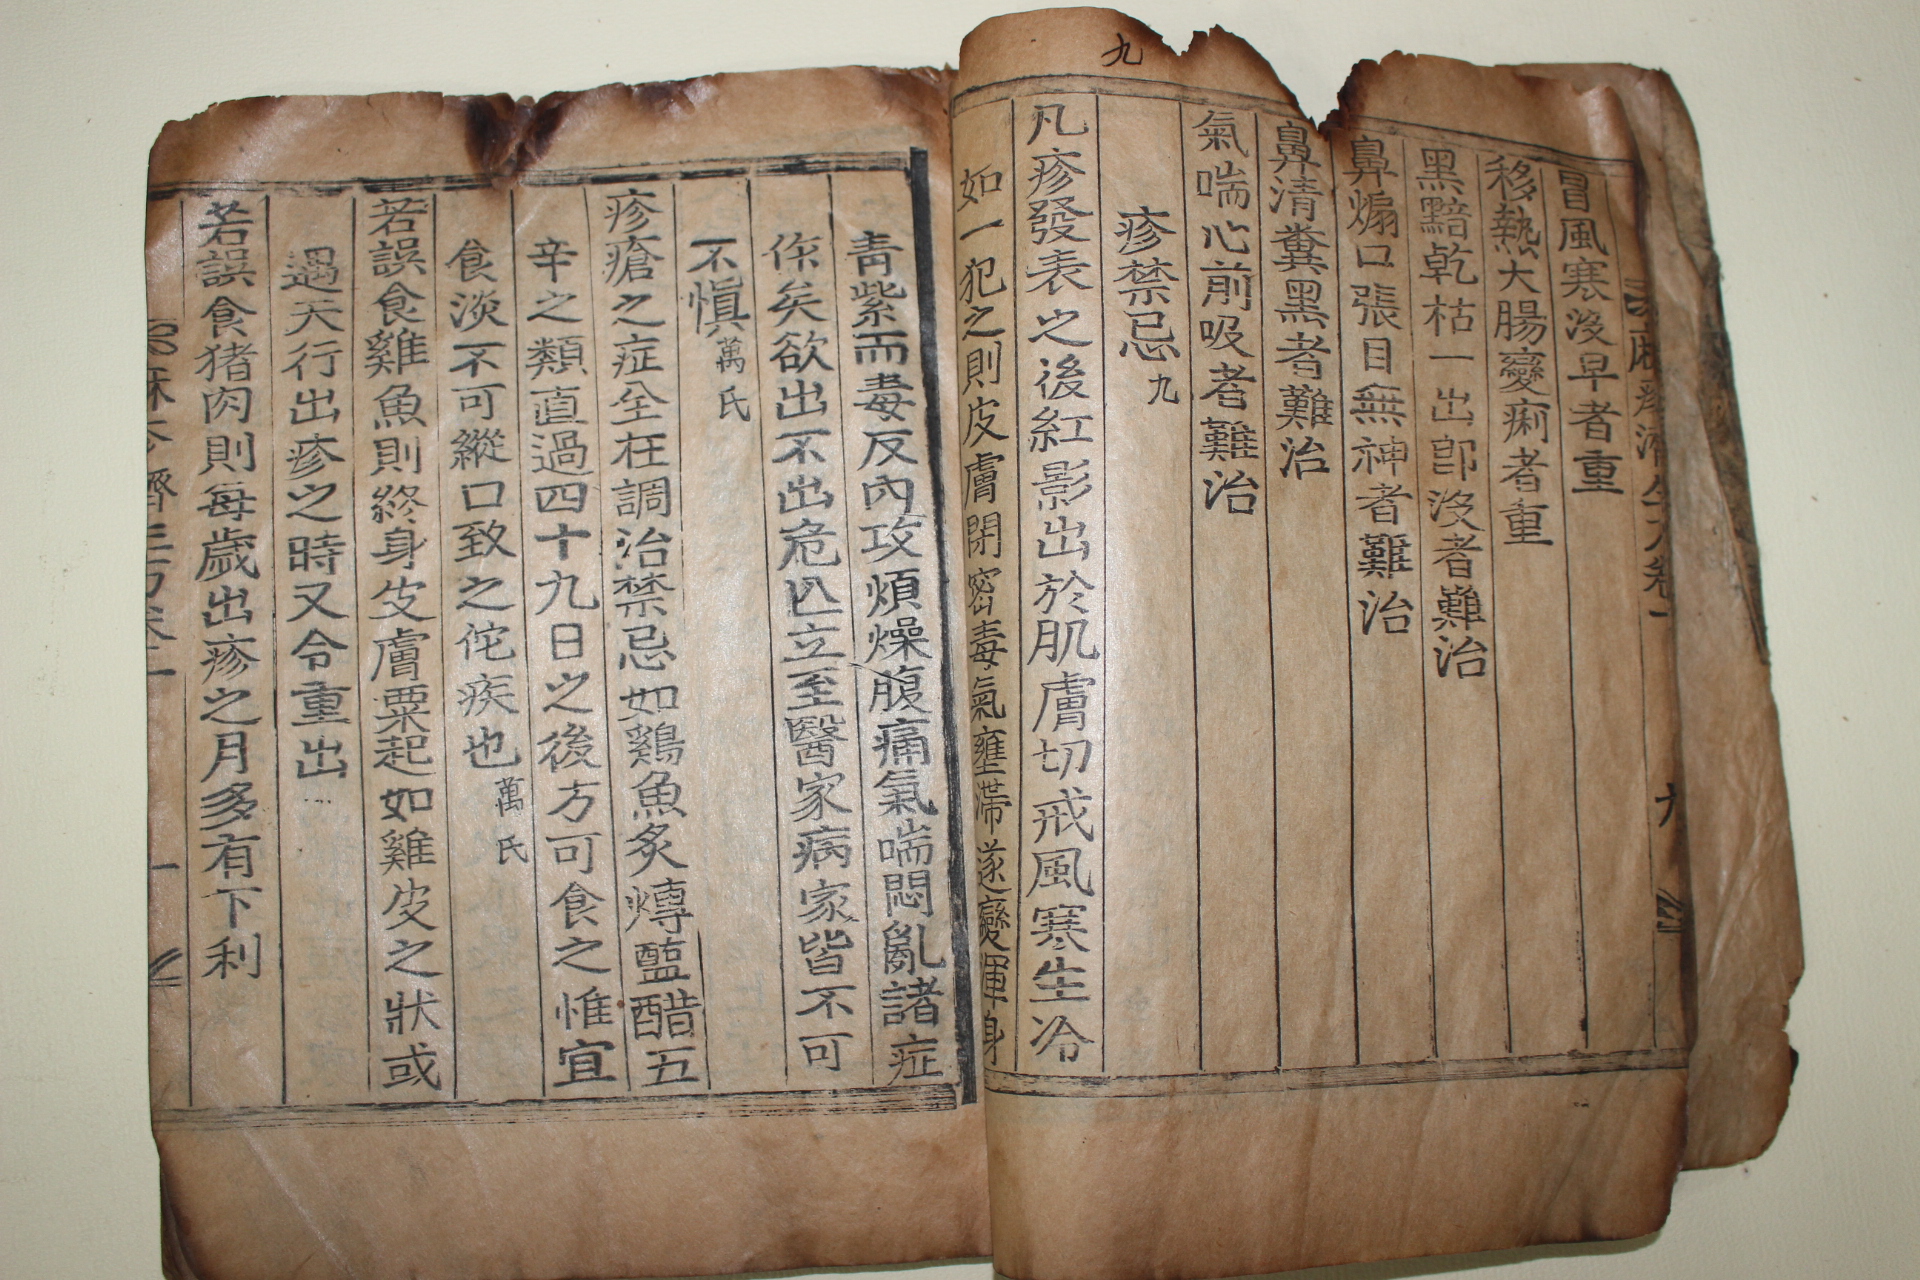 九
冒風寒沒早者重
移熱大腸變痢者重
黑黯乾枯一出卽沒者難治
鼻煽口張目無神者難治
鼻清糞黑者難治
氣喘心前吸者難治
疹禁忌九
凡疹發表之後紅影出於肌膚切戒風寒生冷
如一犯之則皮膚閉密毒氣壅滯遂變渾身
靑紫而毒反內攻煩燥腹痛氣喘悶亂諸症
作矣欲出不出危亡立至醫家病家皆不可
不愼萬氏
疹瘡之症全在調治禁忌如鷄魚炙煿鹽醋五
辛之類直過四十九日之後方可食之惟宜
食淡不可縱口致之侘疾也萬氏
若誤食雞魚則終身皮膚粟起如雞皮之狀或
遇天行出疹之時又令重出
若誤食猪肉則每歲出疹之月多有下利